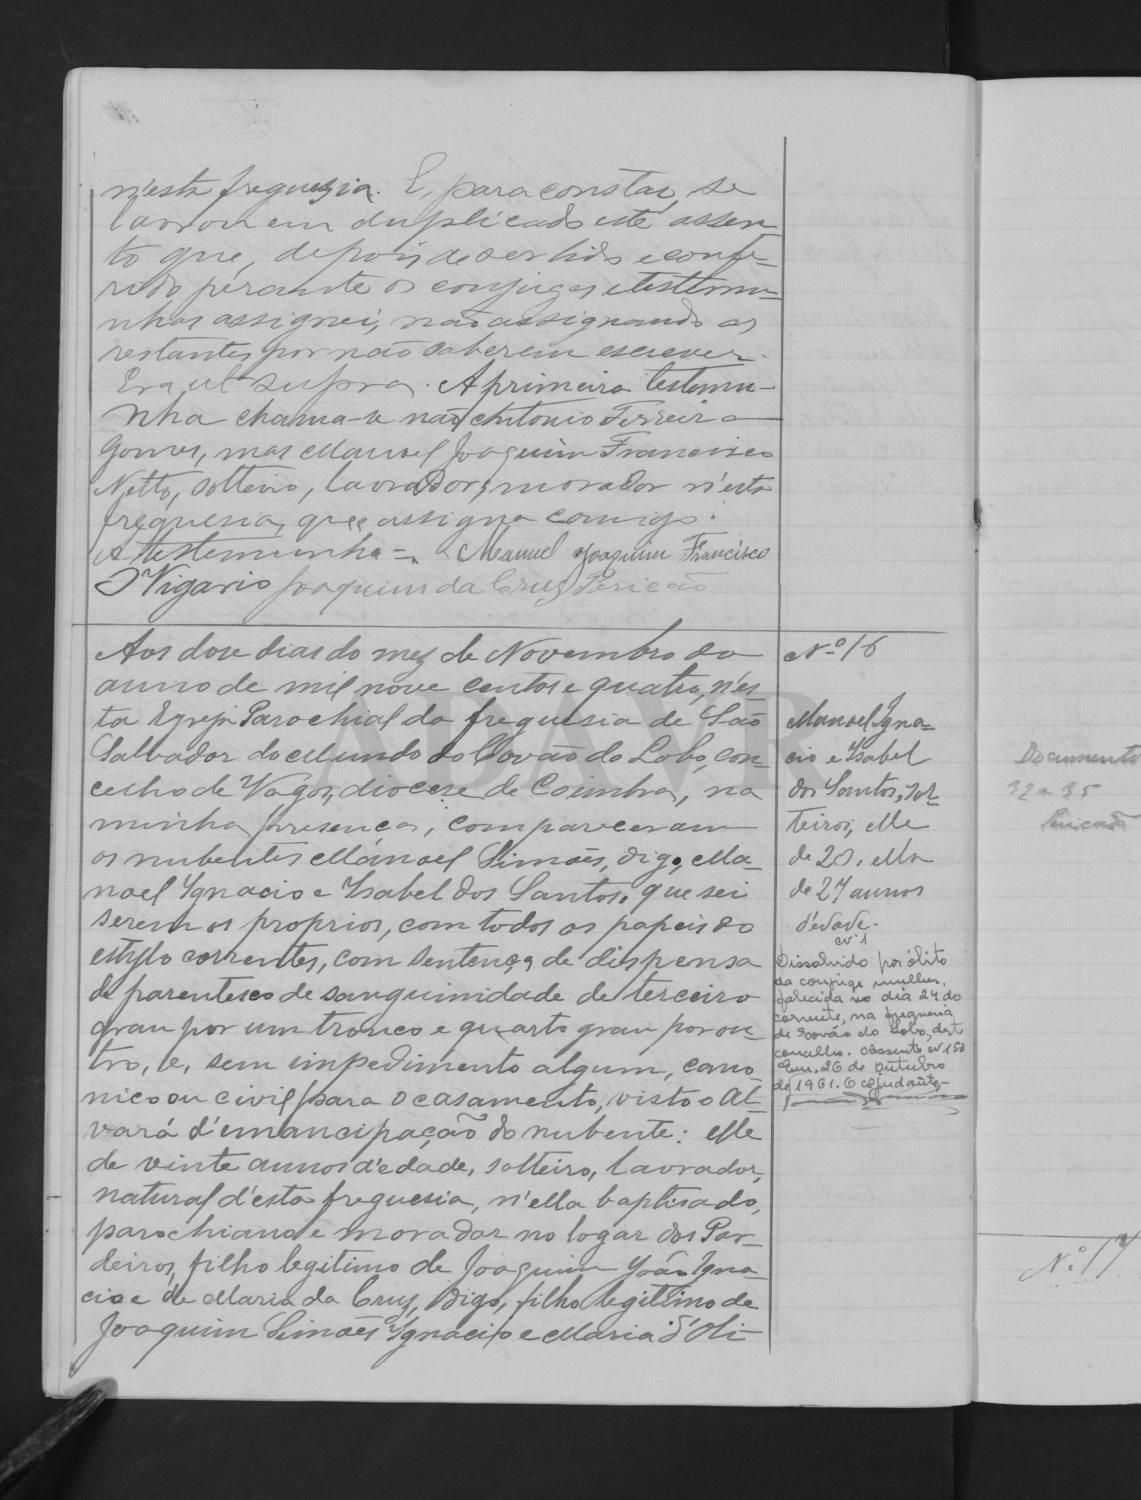 n'esta freguezia. E, para constar, se
lavrou em duplicado este assen-
to que, depois de ser lido e confe-
rido perante os conjuges e testemu-
nhas assignei, não assignando os
restantes por não saberem escrever.
Era ut supra. A primeira testemu-
nha chama-se não Antonio Ferreira
Gomes, mas Manoel Joaquim Francisco
Netto, solteiro, lavrador, morador n'esta
freguesia, que assigna comigo.
A testemunha = Manuel Joaquim Francisco
O Vigario Joaquim da Cruz Pericão
Aos dose dias do mez de Novembro do
anno de mil nove centos e quatro, n'es-
ta Egreja Parochial da freguesia de São
Salvador do Mundo do Covão do Lobo, con-
celho de Vagos, diocese de Coimbra, na
minha presença, compareceram
os nubentes Manoel Simões, digo, Ma-
noel Ignacio e Isabel dos Santos, que sei
serem os proprios, com todos os papeis do
estylo correntes, com sentença de dispensa
de parentesco de sanguinidade de terceiro
grau por um tronco e quarto grau por ou-
tro, e, sem impedimento algum, cano-
nico ou civil para o casamento, visto o Al-
vará d'emancipação do nubente: elle
de vinte annos d'edade, solteiro, lavrador,
natural d'esta freguesia, n'ella baptisado,
parochiano e morador no logar dos Par-
deiros, filho legitimo de Joaquim João Igna-
cio e de Maria da Cruz, digo, filho legitimo de
Joaquim Simões Ignacio e Maria d'Oli-
Nº 16
Manoel Igna-
cio e Isabel
dos Santos, sol-
teiros, elle
de 20, ella
de 27 annos
d'edade.
Nº 1
Dissolvido por óbito
da conjuge mulher,
falecida no dia 24 do
corrente, na freguesia
de Covão do Lobo, deste
concelho. Assento nº 153
Em, 26 de outubro
de 1961. O ajudante,
Documentos
32 a 35
Pericão
Nº 17
ADAVR